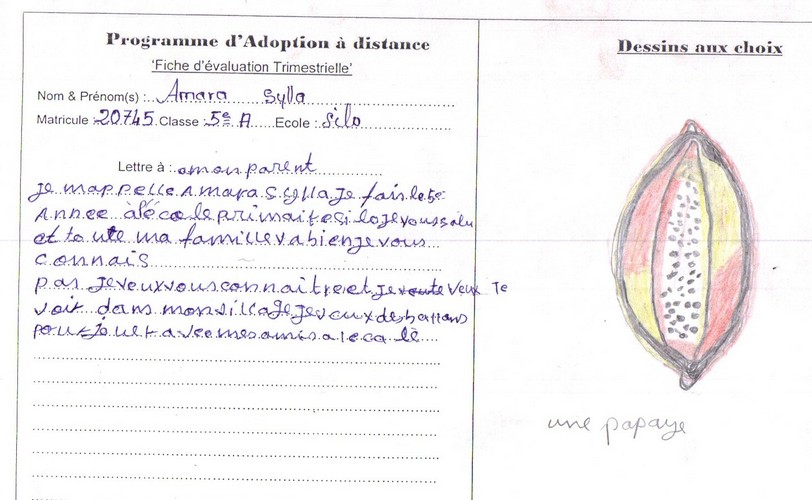 Programme d'Adoption à distance
'Fiche d'évaluation Trimestrielle'
Nom & Prénom(s) : Amara Sylla
Matricule : 20745 Classe : 5e A Ecole : Silo
Lettre à : amon parent
Je mappelle Amara Sylla Je fais le 5e
Annee àlécole primaire silo Je vous salu
et toute ma famille va bien je vous
connais
pas Je veux vous connaitre et Je veux Te
voir dans mon village Je veux des ballons
pour Jouer avec mes amis a lecole
Dessins aux choix
une papaye